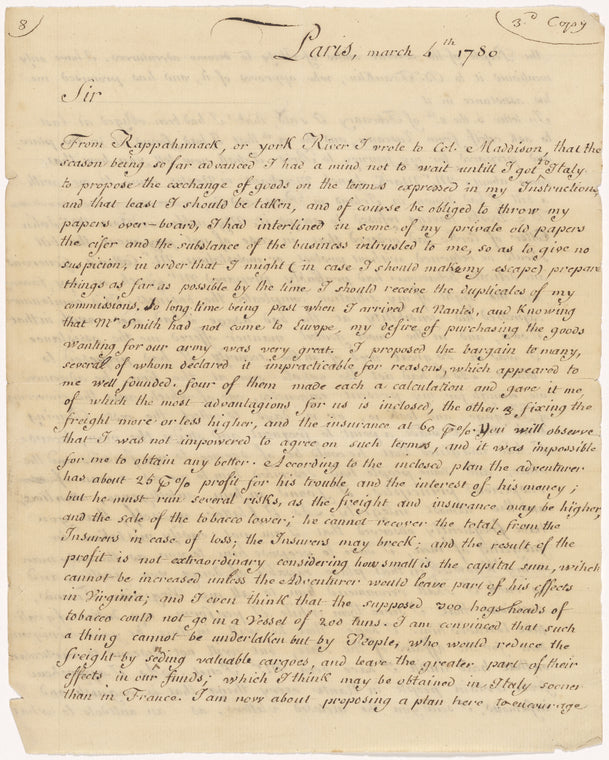 8
3.d Copy
Paris, march 4th 1780
Sir
From Rappahnnack, or york River I wrote to Col. Maddison, that the
season being so far advanced I had a mind not to wait untill I got to Italy
to propose the exchange of goods on the terms expressed in my Instructions
and that least I should be taken, and of course be obliged to throw my
papers over-board, I had interlined in some of my private old papers
the cifer and the substance of the business intrusted to me, so as to give no
suspicion, in order that I might (in case I should make my escape) prepare
things as far as possible by the time I should receive the duplicates of my
commissions. So long time being past when I arrived at Nantes, and knowing
that Mr Smith had not come to Europe, my desire of purchasing the goods
wanting for our army was very great. I proposed the bargain to many,
several of whom declared it impracticable for reasons, which appeared to
me well founded. four of them made each a calculation and gave it me,
of which the most advantagious for us is inclosed, the other 3, fixing the
freight more or less higher, and the insurance at 60 P%. You will observe
that I was not impowered to agree on such terms, and it was impossible
for me to obtain any better. According to the inclosed plan the adventurer
has about 25 P% profit for his trouble and the interest of his money;
but he must run several risks, as the freight and insurance may be higher,
and the sale of the tobacco lower; he cannot recover the total from the
Insurers in case of loss; the Insurers may breck; and the result of the
profit is not extraordinary considering how small is the capital sum, wihch
cannot be increased unless the Adventurer would leave part of his effects
in Virginia; and I even think that the supposed 300 hogsheads of
tobacco could not go in a Vessel of 200 tuns. I am convinced that such
a thing cannot be undertaken but by People, who would reduce the
freight by sending valuable cargoes, and leave the greater part of their
effects in our funds; which I think may be obtained in Italy sooner
than in France. I am now about proposing a plan here to encourage